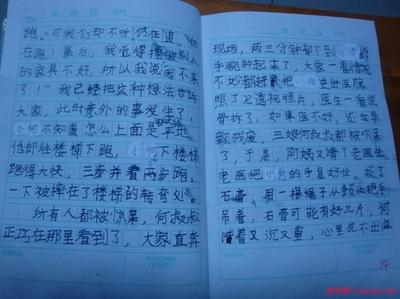 年 月 日 天气
跑。可我仍却不听仍在追，仍
在跑！最后，我觉得撞破别人
的家具不好，所以我说我不来
了！"我已经把这种想法告诉
大家，此时意外的事发生了，
小何不知道怎么上面是平地，
他却往楼梯下跑，小何下楼梯
跑得太快，三步并着两步跑，
一下被摔在了楼梯的转弯处。
所有人都被惊呆，何叔叔
正巧在那里看到了，大家直奔
现场，两三分钟都不到
手腕肿起来了，大家一看情况
不妙都好最把小何送进医院，
照了_透视照片，医生一看说
骨折了，如果医不好，还会导
致残废，三娘何叔叔都被吓呆
了，于是，阿姨又请了老医生
老医把小何的手复好位，敷了
石膏，用一根绳子从颈处把手
吊着，石膏可能有好几斤，何
嘴着又沉又重，心里说不出滋
14